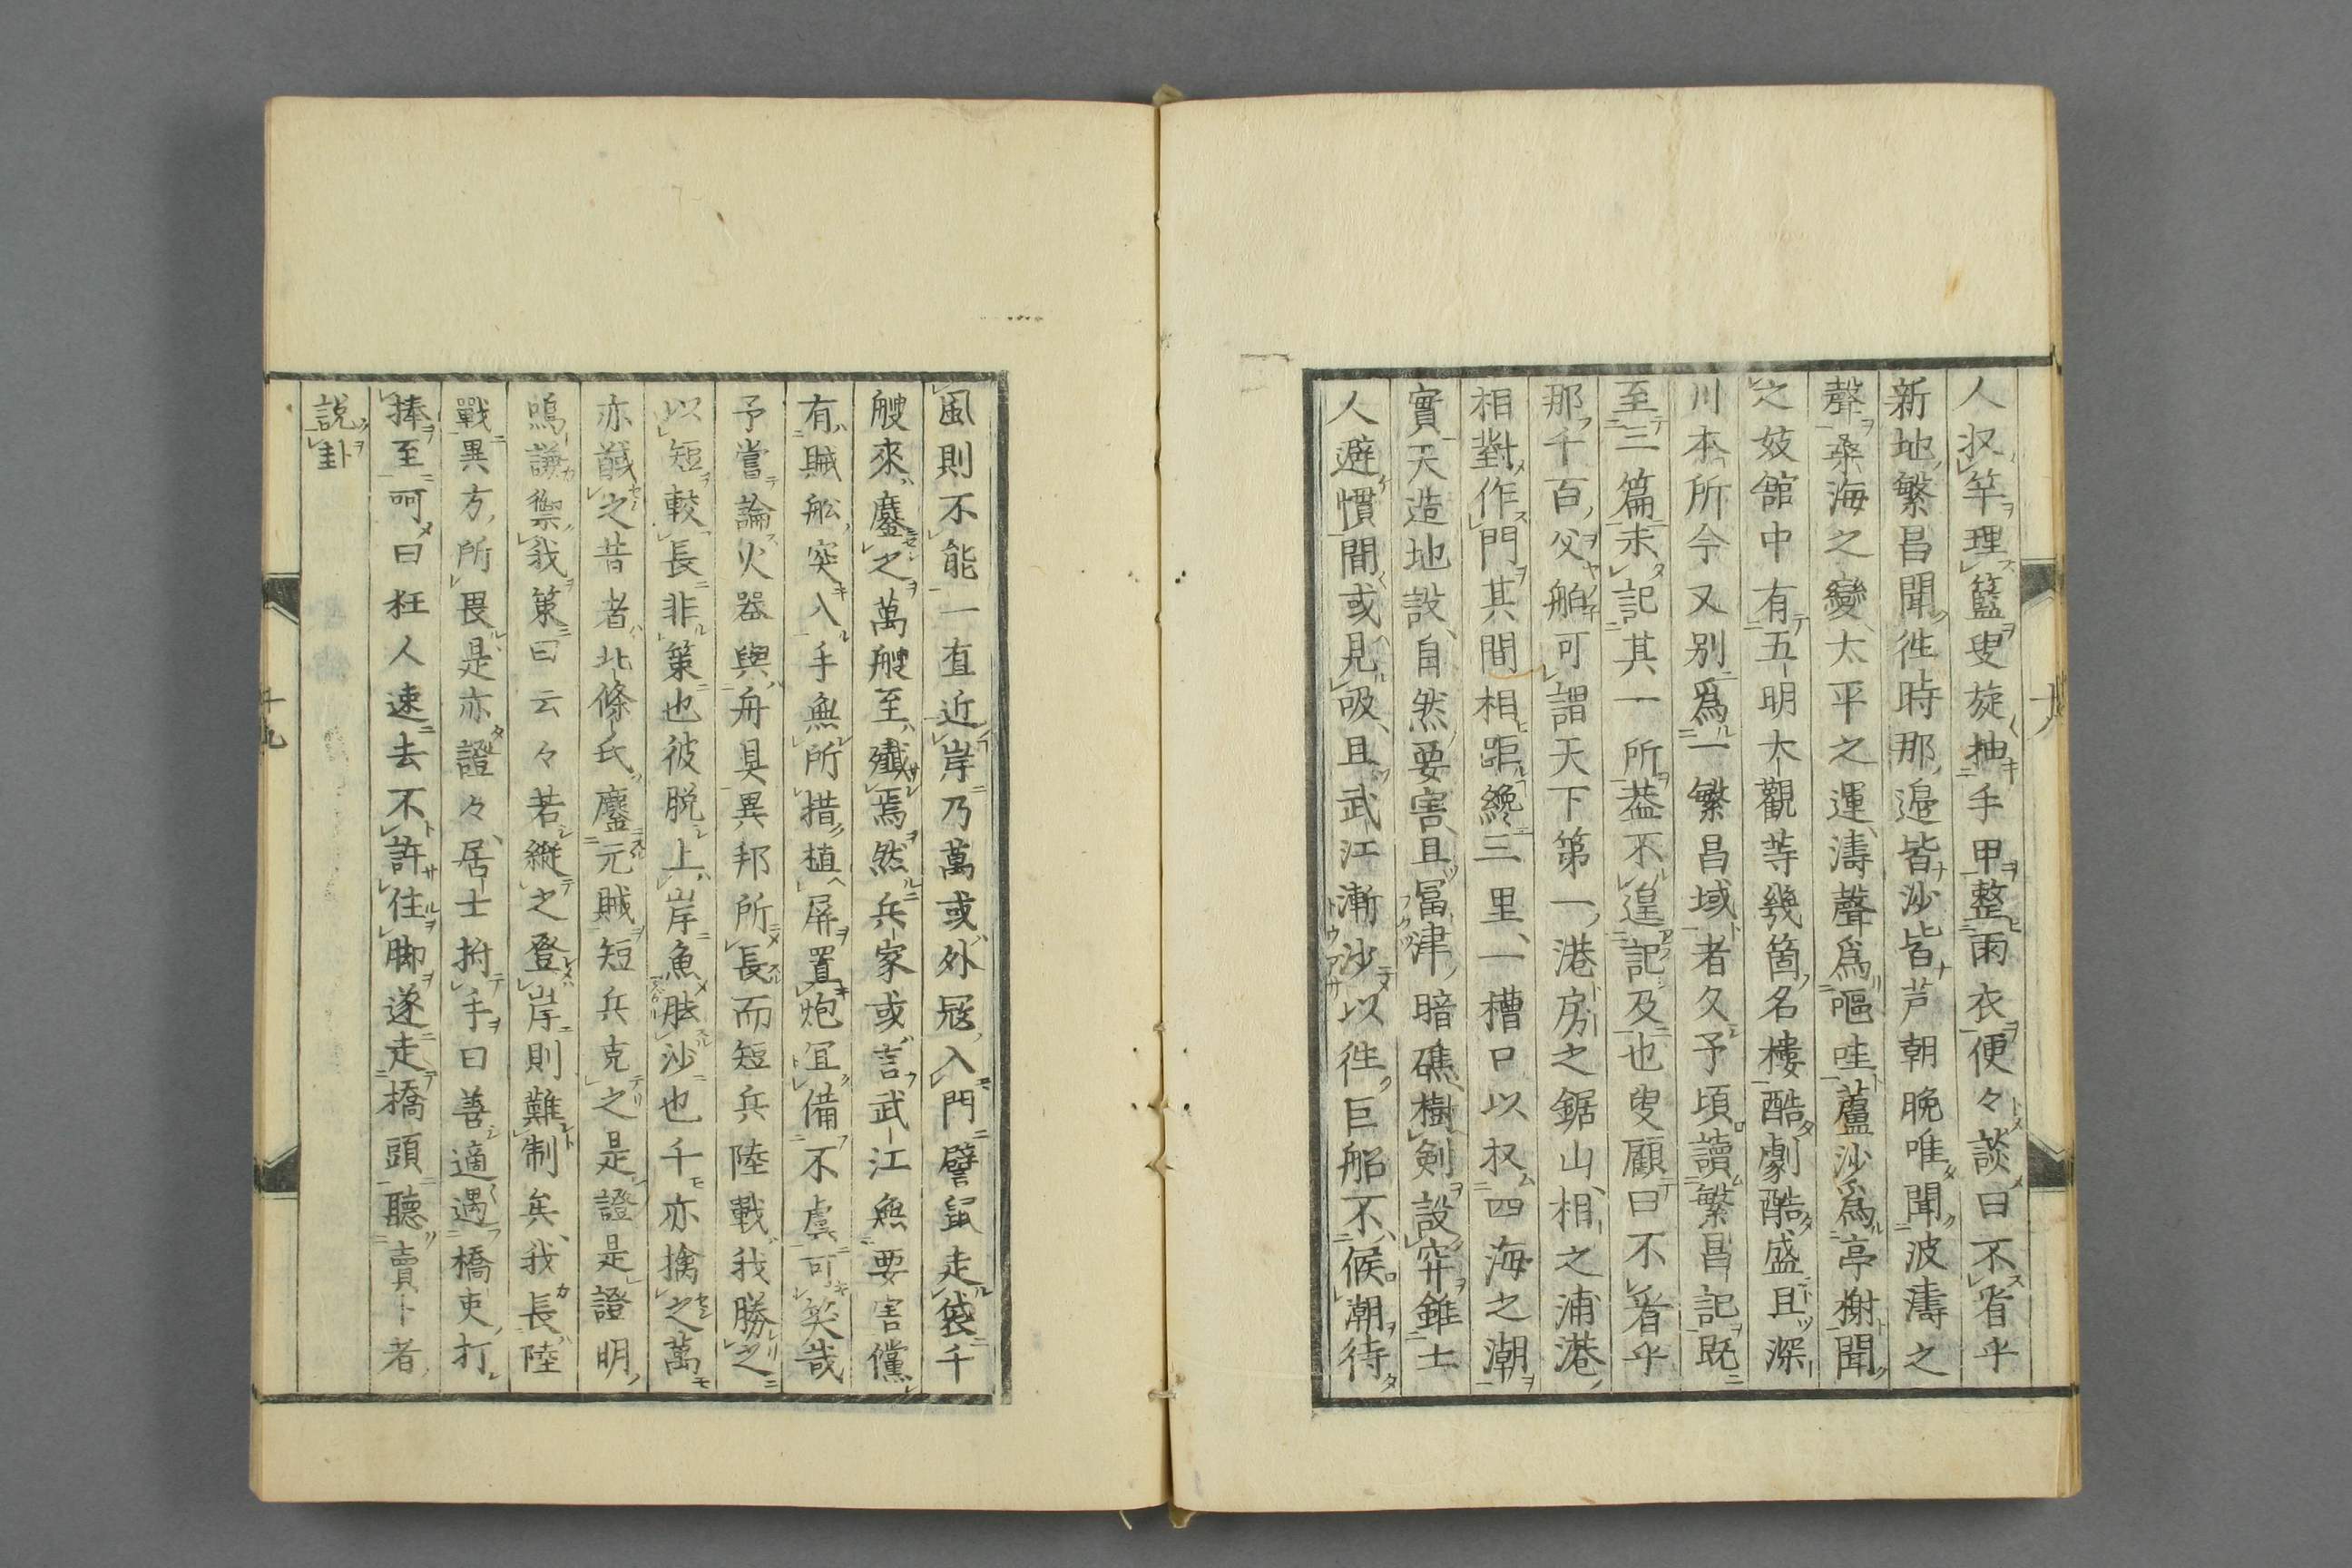 人収竿理籃叟旋抽手甲整雨衣便々談曰不省乎
新地繁昌聞徃時那邉皆沙皆芦朝晩唯聞波濤之
聲桑海之變太平之運濤聲爲嘔哇蘆沙爲亭榭聞
之妓館中有五明大觀等幾箇名樓酷劇酷盛且深
川本所今又别爲一繁昌域者久予頃讀繁昌記既
至三篇未記其一所葢不遑記及也叟顧曰不省乎
那千百父舶可謂天下第一港房之鋸山相之浦港
相對作門其間相距纔三里一槽口以扠四海之潮
實天造地設自然要害且冨津暗礁樹剣設穽錐土
人避慣間或見吸且武江漸沙以徃巨船不候潮待
風則不能一直近岸乃萬或外冦入門譬鼠走袋千
艘來鏖之萬艘至殲焉然兵家或言武江無要害儻
有賊舩突入手無所措植屏置炮冝備不虞可笑哉
予嘗論火器與舟具異邦所長而短兵陸戰我勝之
以短較長非策也彼脱上岸魚胠沙也千亦擒之萬
亦馘之昔者北條氏鏖元賊短兵克之是證是證明
鳴謙禦我策曰云々若縱之登岸則難制矣我長陸
戰異方所畏是亦證々居士拊手曰善適遇橋吏打
捧至呵曰狂人速去不許住脚遂走橋頭聽賣卜者
説卦